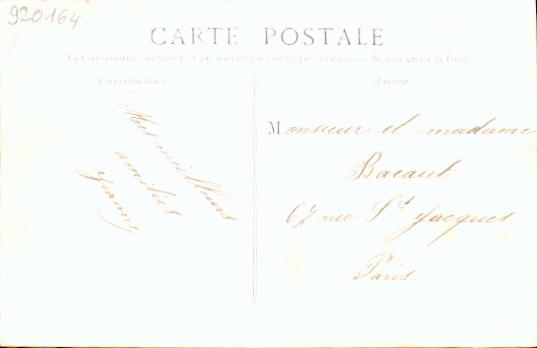 920164
CARTE POSTALE
La Correspondance au recto n'est pas acceptée par tous les pays étrangers. — Se renseigner à la Poste.
Correspondance
Adresse
Mes meilleurs
amitiés
Monsieur et madame
Bacaut
67 rue St Jacques
Paris